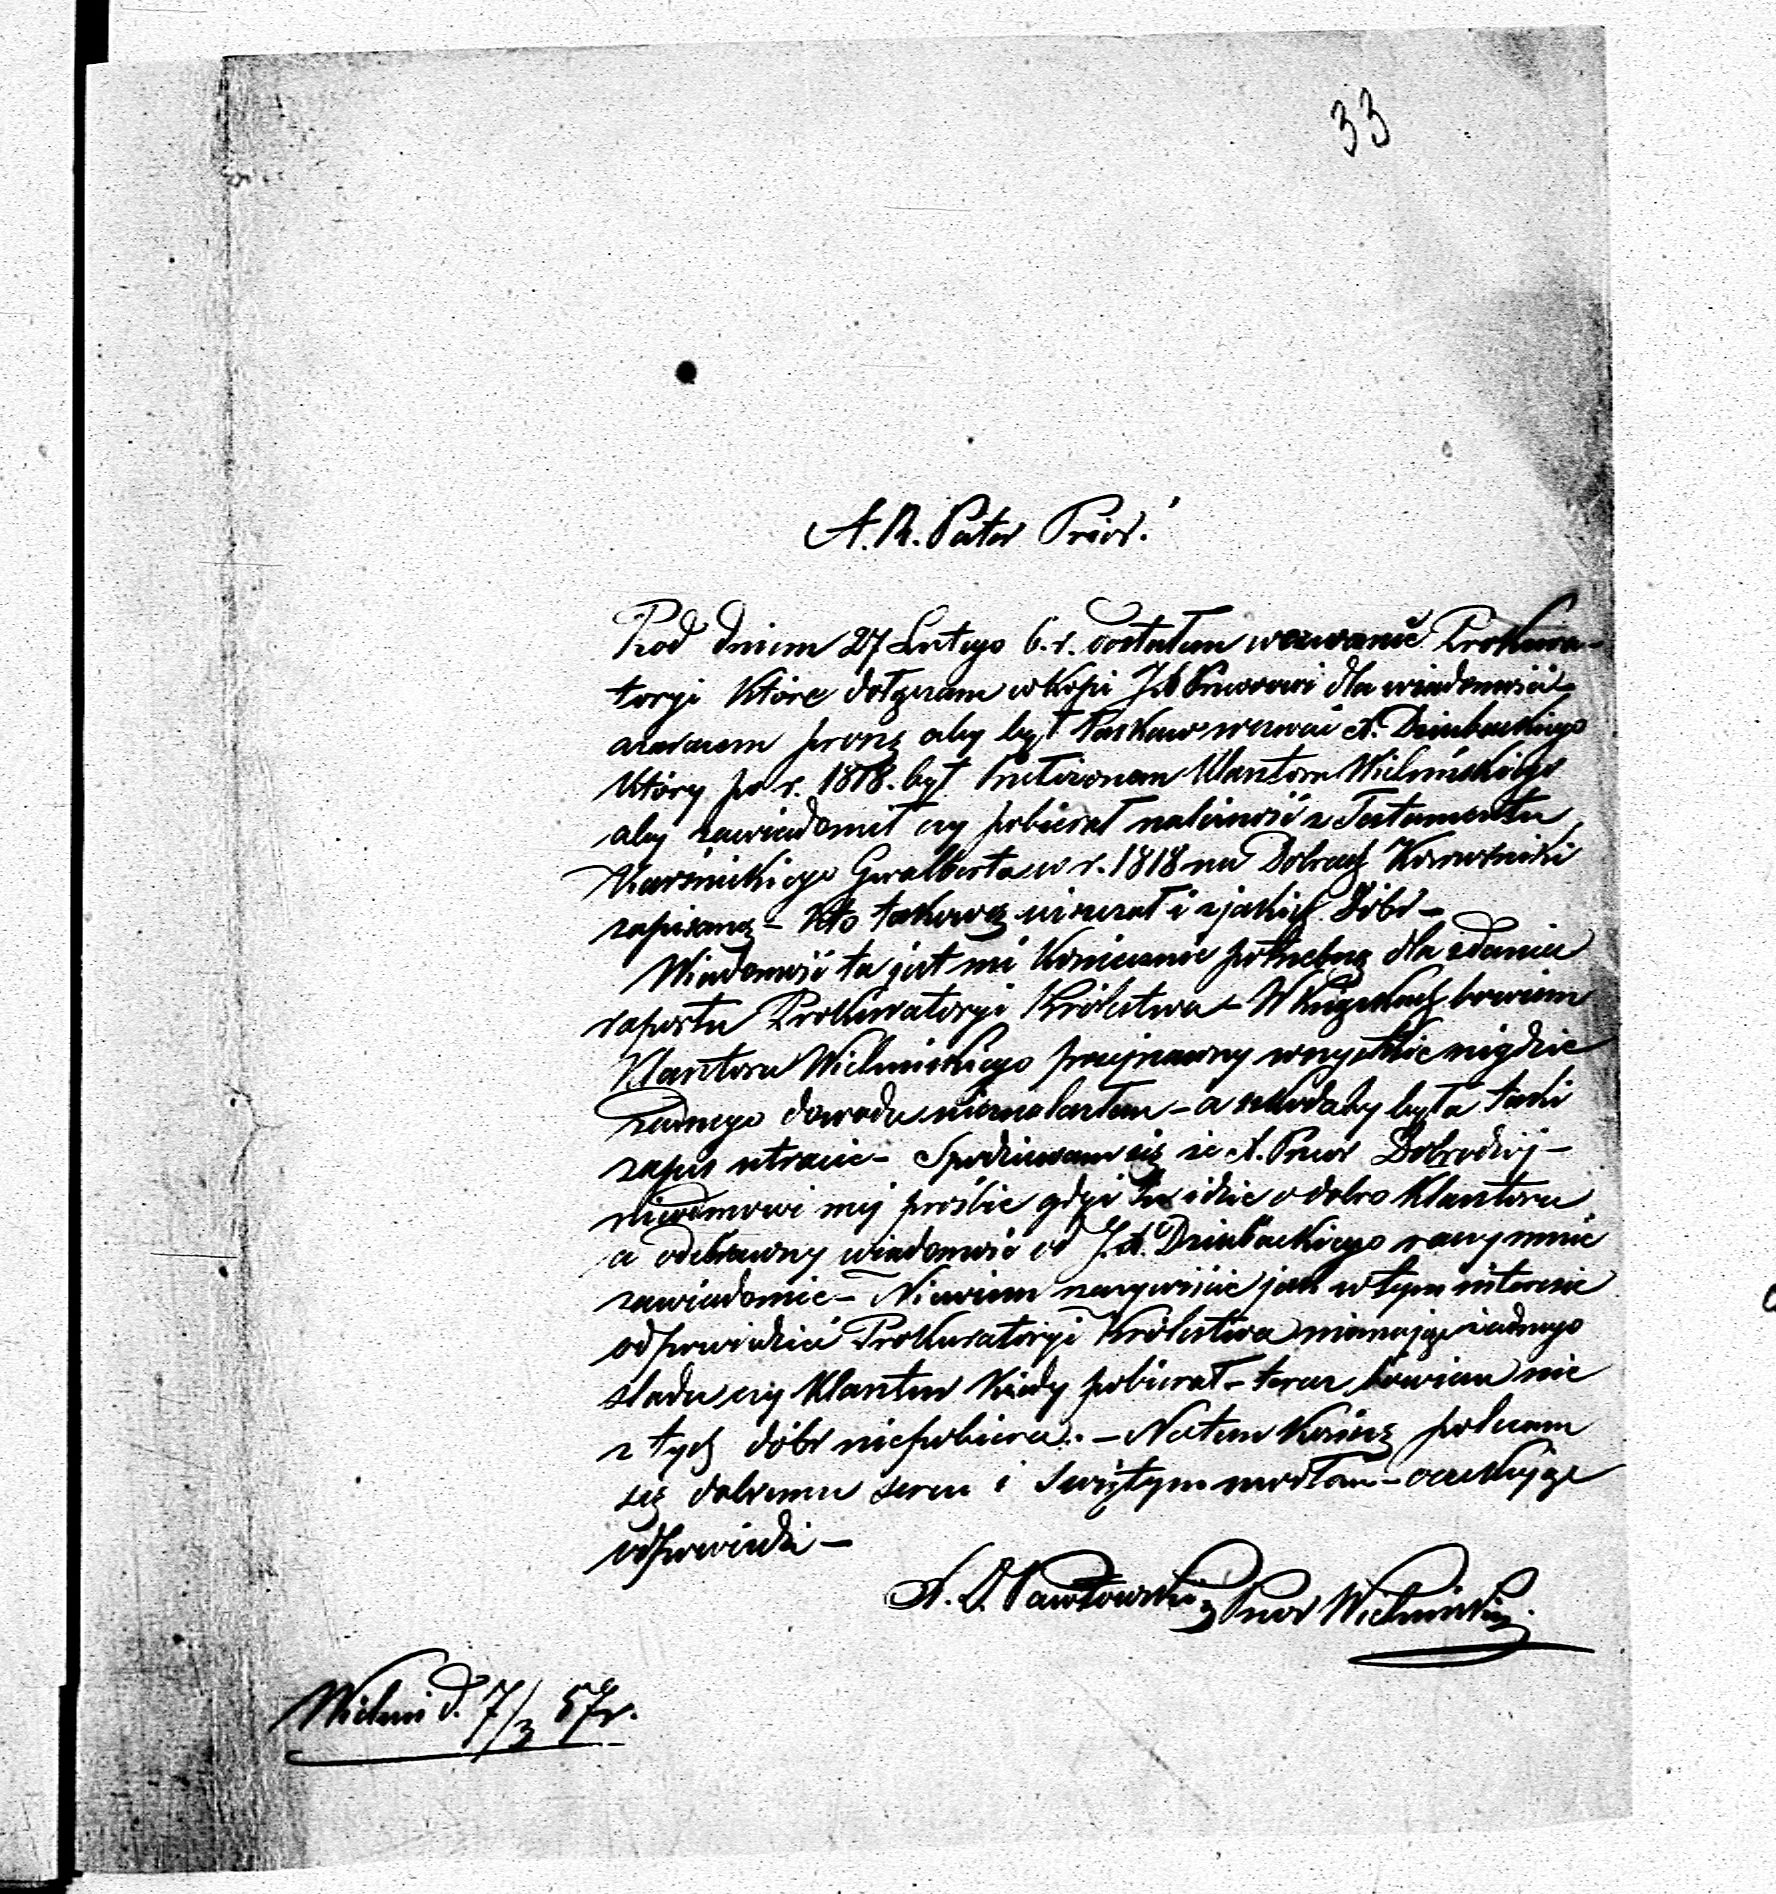 33
A. R. Pater Prior!
Pod dniem 27 Lutego b. r. dostałem wezwanie Prokura-
toryi które dołączam w kopii JX Przeorowi dla wiadomości
a zarazem proszę aby był łaskaw wezwać X. Dziubackiego
który po r. 1818. był Kla­sztoru Wieluńskiego
aby zawiadomił czy pobierał należność z Testamentu
Karśnickiego Gwalberta w r. 1818 na Dobrach
zapisaną – kto takową uiszczał i z jakich Dóbr –
Wiadomość ta jest mi koniecznie potrzebną dla zdania
raportu Prokuratoryi Królestwa – W Książkach bowiem
Klasztoru Wieluńskiego przejrzawszy wszystkie nigdzie
żadnego dowodu nieznalazłem – a szkodaby była taki
zapis utracić – Spodziewam się że X. Przeor Dobrodziej –
nieodmówi mej prośbie gdyż tu idzie o dobro Klasztoru
a odebrawszy wiadomość od JX. Dziubackiego raczy mnie
zawiadomić – Niewiem rzeczywiście jak w tym interesie
odpowiedzieć Prokuratoryi Królestwa niemając żadnego
sladu czy Klasztor kiedy pobierał – teraz bowiem nic
z tych dóbr niepobiera. – Na tem kończę polecam
się dobremu sercu i Swiętym modłom – oczekując
odpowiedzi –
X. D. Pawłowski Przeor Wieluński.
Wieluń d. 7/3 57 r.